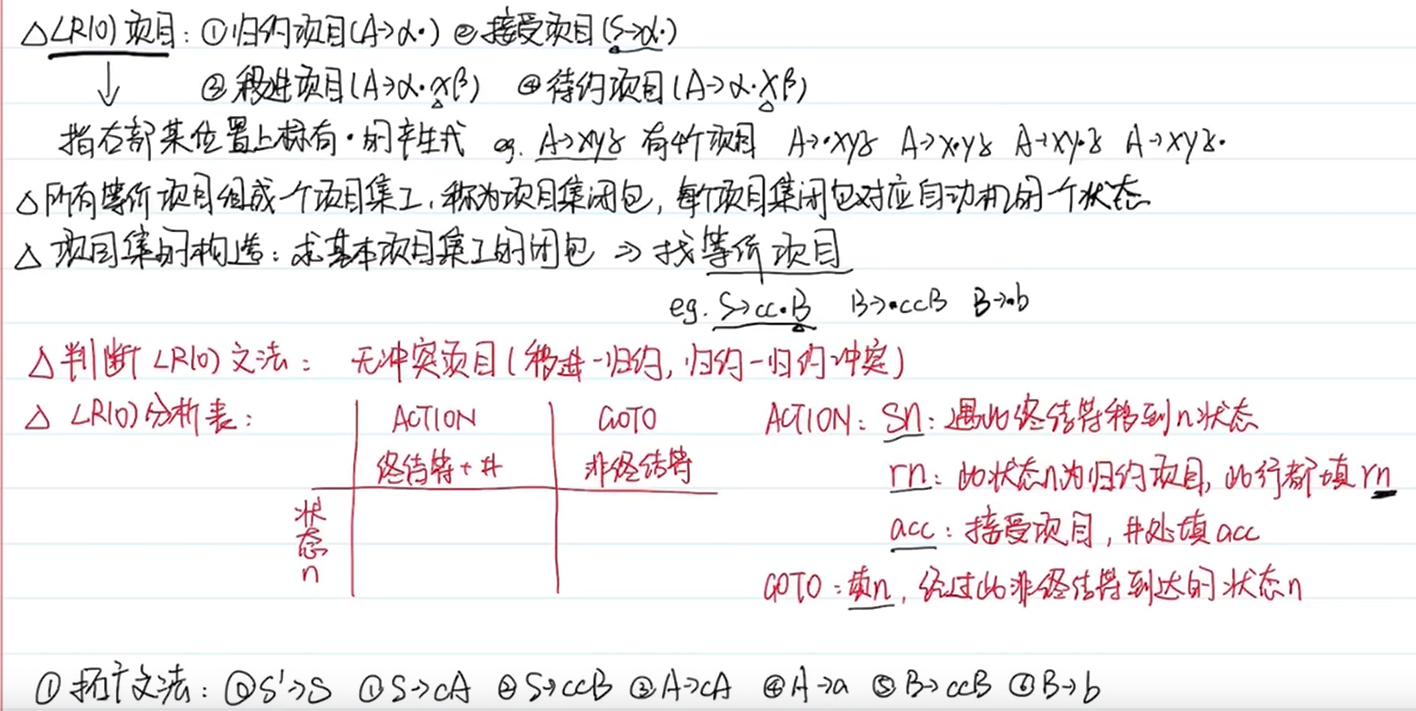 △LR(0)项目：①归约项目(A→α·) ②接受项目(S→α·)
③移进项目(A→α·xβ) ④待约项目(A→α·Xβ)
指右部某位置上标有·的产生式 eg. A→xyz 有4个项目 A→·xyz A→x·yz A→xy·z A→xyz·
△所有等价项目组成一个项目集I，称为项目集闭包，每个项目集闭包对应自动机的一个状态
△项目集的构造：求基本项目集I的闭包 ⇒ 找等价项目
eg. S→cc·B B→·ccB B→·b
△判断LR(0)文法：无冲突项目(移进-归约，归约-归约冲突)
△LR(0)分析表：
ACTION GOTO
终结符+# 非终结符
状态n
ACTION：Sn：遇此终结符移到n状态
rn：此状态n为归约项目，此行都填rn
acc：接受项目，#处填acc
GOTO：填n，经过此非终结符到达的状态n
①拓广文法：⓪S'→S ①S→cA ②S→ccB ③A→cA ④A→a ⑤B→ccB ⑥B→b